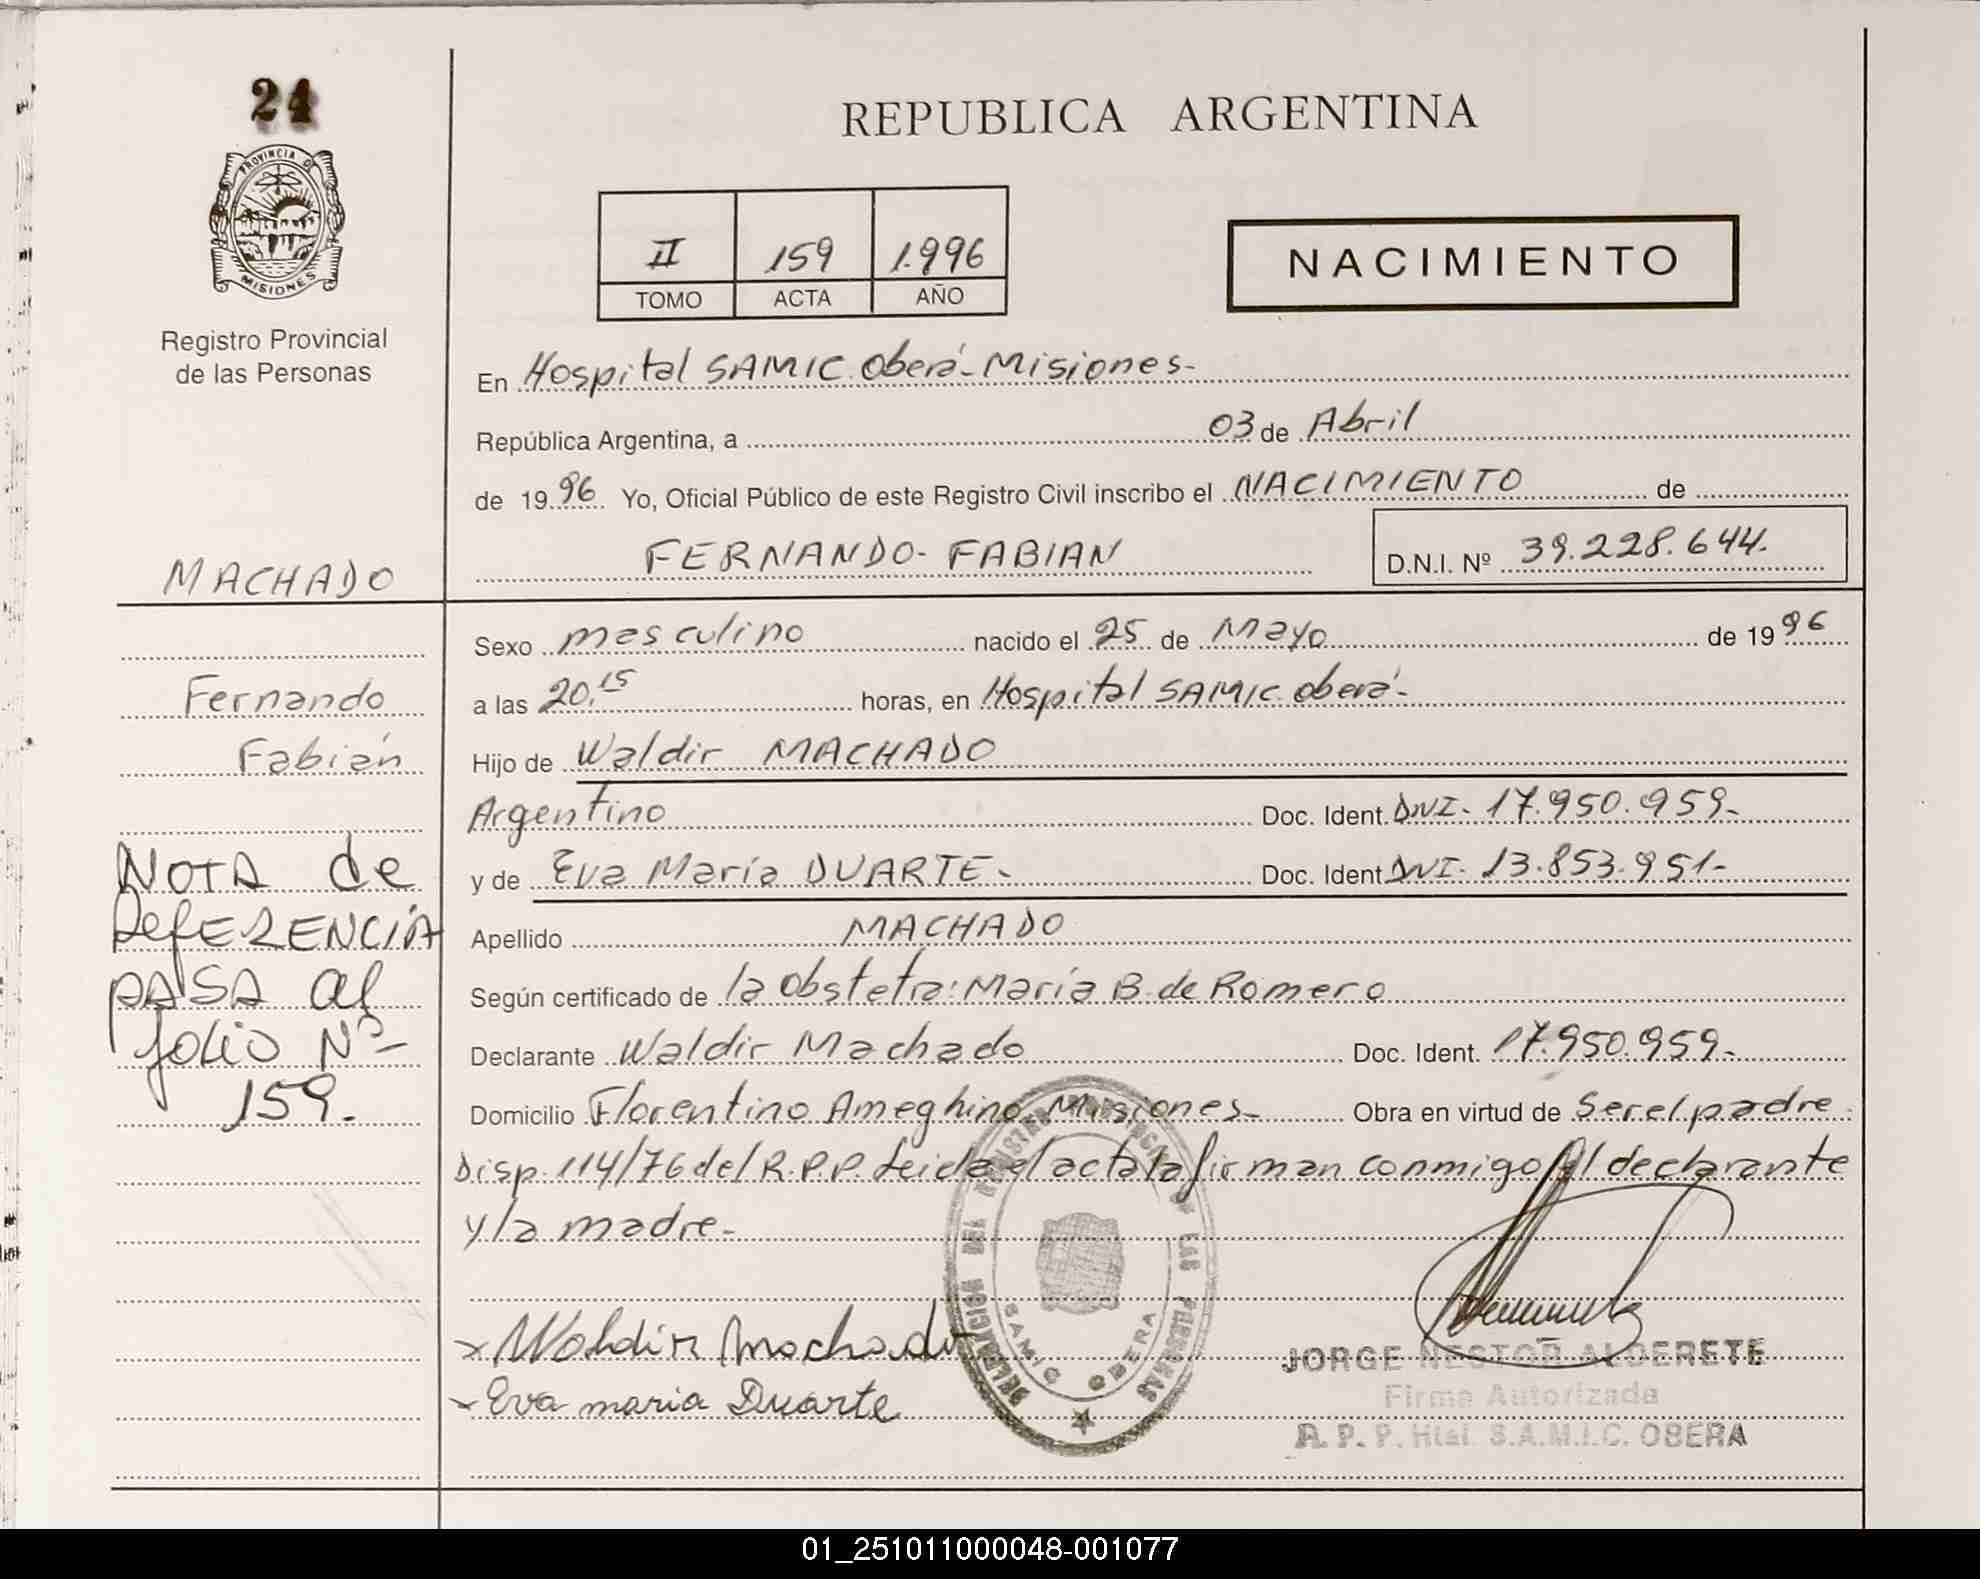 24
PROVINCIA D
MISIONES
Registro Provincial
de las Personas
MACHADO
Fernando
Fabián
NOTA de
REFERENCIA
PASA al
folio Nº
159.
REPUBLICA ARGENTINA
II 159 1.996
TOMO ACTA AÑO
NACIMIENTO
En Hospital SAMIC Oberá-Misiones-
República Argentina, a 03 de Abril
de 1996 Yo, Oficial Público de este Registro Civil inscribo el NACIMIENTO de
FERNANDO-FABIAN D.N.I. Nº 39.228.644.
Sexo masculino nacido el 25 de Mayo de 1996
a las 20,15 horas, en Hospital SAMIC Oberá-
Hijo de Waldir MACHADO
Argentino Doc. Ident. DNI- 17.950.959-
y de Eva María DUARTE- Doc. Ident DNI- 13.853.951-
Apellido MACHADO
Según certificado de la obstetra: María B. de Romero
Declarante Waldir Machado Doc. Ident. 17.950.959-
Domicilio Florentino Ameghino Misiones- Obra en virtud de ser el padre
Disp. 114/76 del R.P.P. Leida el acta la firman conmigo el declarante
y la madre-
x Waldir Machado
x Eva maria Duarte
DELEGACION DEL REGISTRO PROVINCIAL DE LAS PERSONAS
SAMIC OBERA
JORGE NESTOR ALDERETE
Firma Autorizada
R. P. P. Htal. S.A.M.I.C. OBERA
01_251011000048-001077